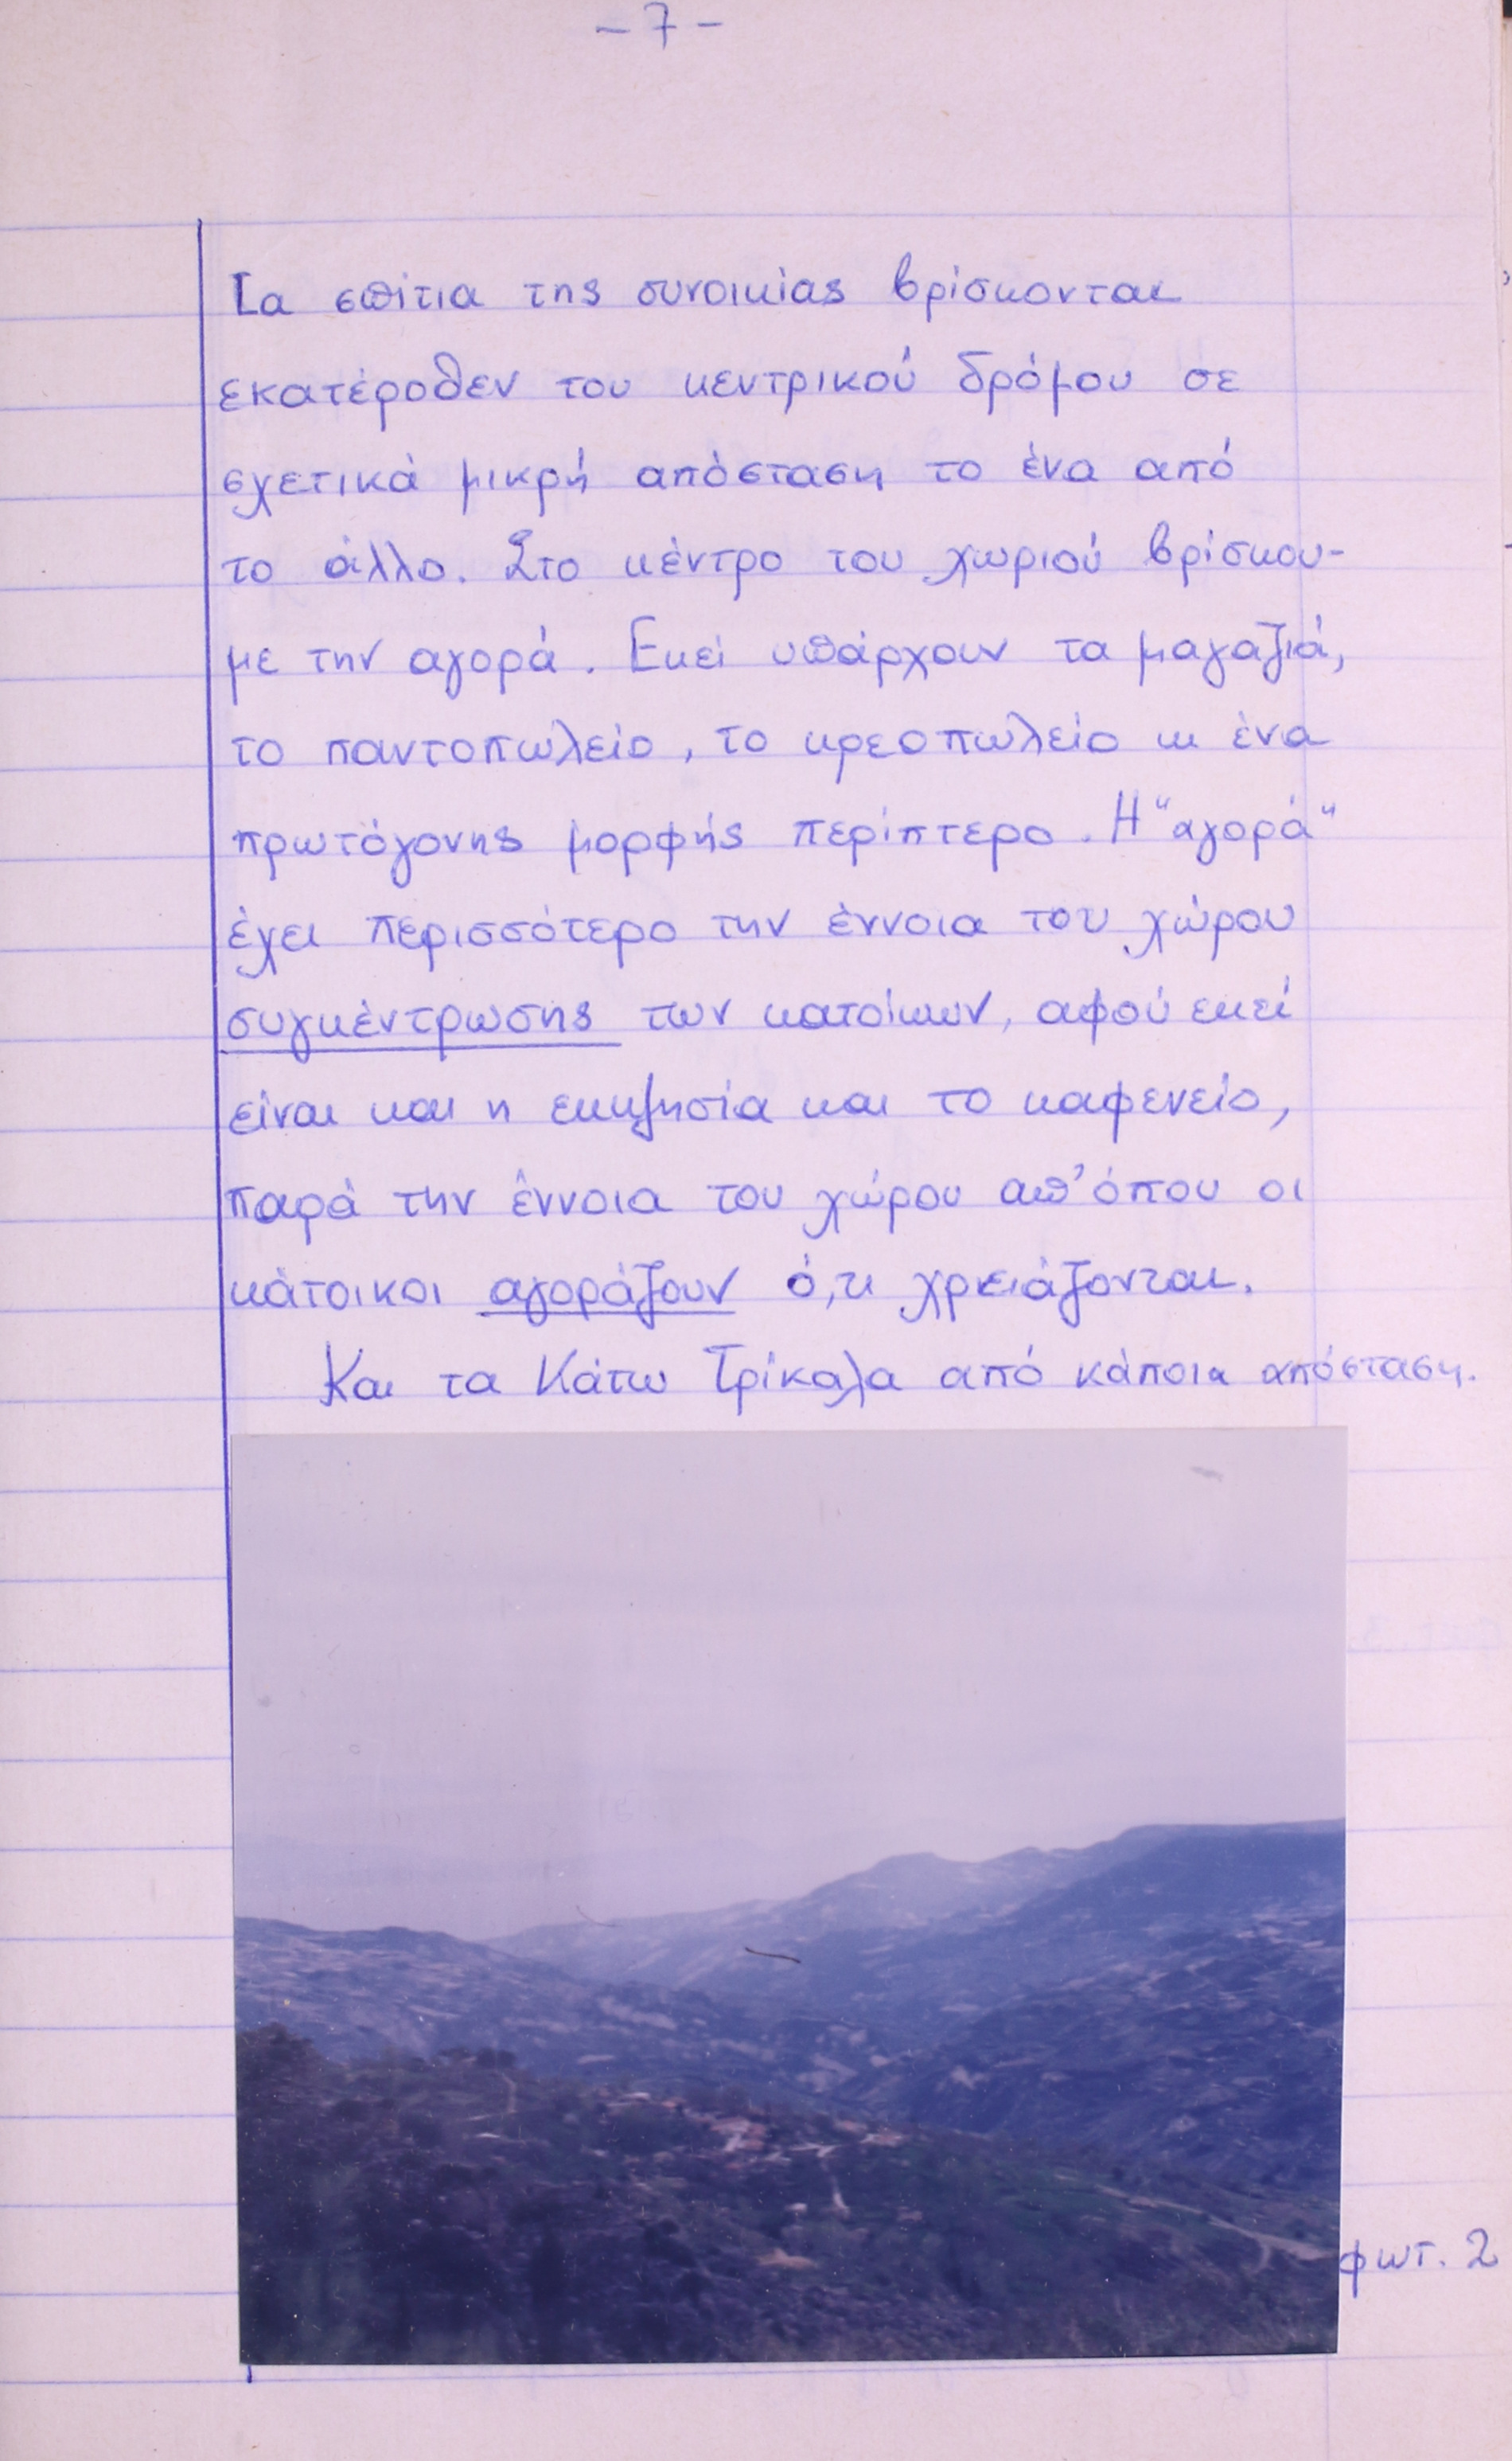 -7-
Τα σπίτια της συνοικίας βρίσκονται
εκατέροθεν του κεντρικού δρόμου σε
σχετικά μικρή απόσταση το ένα από
το άλλο. Στο κέντρο του χωριού βρίσκου-
με την αγορά. Εκεί υπάρχουν τα μαγαζιά,
το παντοπωλείο, το κρεοπωλείο κι ένα
πρωτόγονης μορφής περίπτερο. Η "αγορά"
έχει περισσότερο την έννοια του χώρου
συγκέντρωσης των κατοίκων, αφού εκεί
είναι και η εκκλησία και το καφενείο,
παρά την έννοια του χώρου απ' όπου οι
κάτοικοι αγοράζουν ό,τι χρειάζονται.
Και τα Κάτω Τρίκαλα από κάποια απόσταση.
φωτ. 2